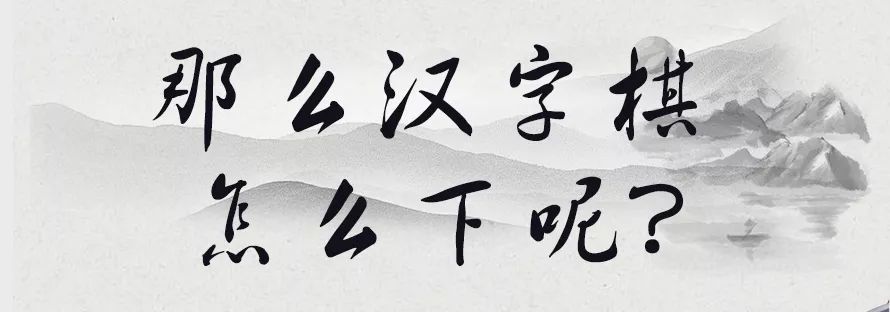 那么汉字棋
怎么下呢?